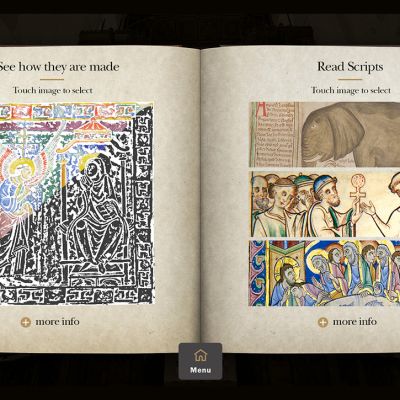 See how they are made
Touch image to select
more info
Read Scripts
Touch image to select
more info
Menu